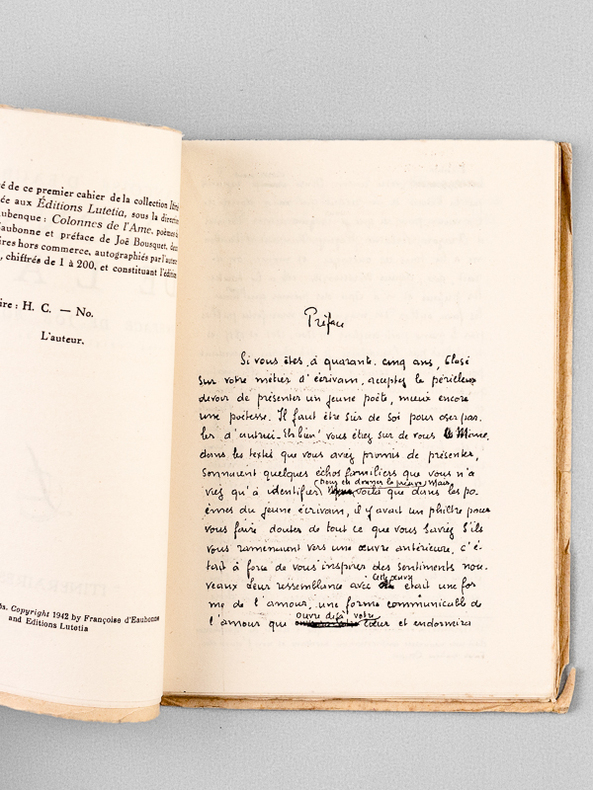 é de ce premier cahier de la collection
ée aux Éditions Lutetia, sous la
ubenque : Colonnes de l'Ame, poèmes
'aubonne et préface de Joë Bousquet,
ires hors commerce, autographiés par l'auteur
, chiffrés de 1 à 200, et constituant l'édition
ire : H. C. — No.
L'auteur.
Copyright 1942 by Françoise d'Eaubonne
and Editions Lutetia
Préface
Si vous êtes, à quarante-cinq ans, blasé
sur votre métier d'écrivain, acceptez le périlleux
devoir de présenter un jeune poète, mieux encore
une poétesse. Il faut être sûr de soi pour oser par-
ler d'autrui. Eh bien! vous étiez sur de vous
dans les textes que vous aviez promis de présenter,
sonnaient quelques échos familiers que vous n'a
viez qu'à identifier (pour en donner la preuve) Mais
voilà que dans les po-
èmes du jeune écrivain, il y avait un philtre pour
vous faire douter de tout ce que vous saviez S'ils
vous ramenaient vers une œuvre antérieure, c'é-
tait à force de vous inspirer des sentiments nou-
veaux leur ressemblance avec cette œuvre était une for
me de l'amour, une forme communicable de
l'amour que ouvre déjà votre cœur et endormira